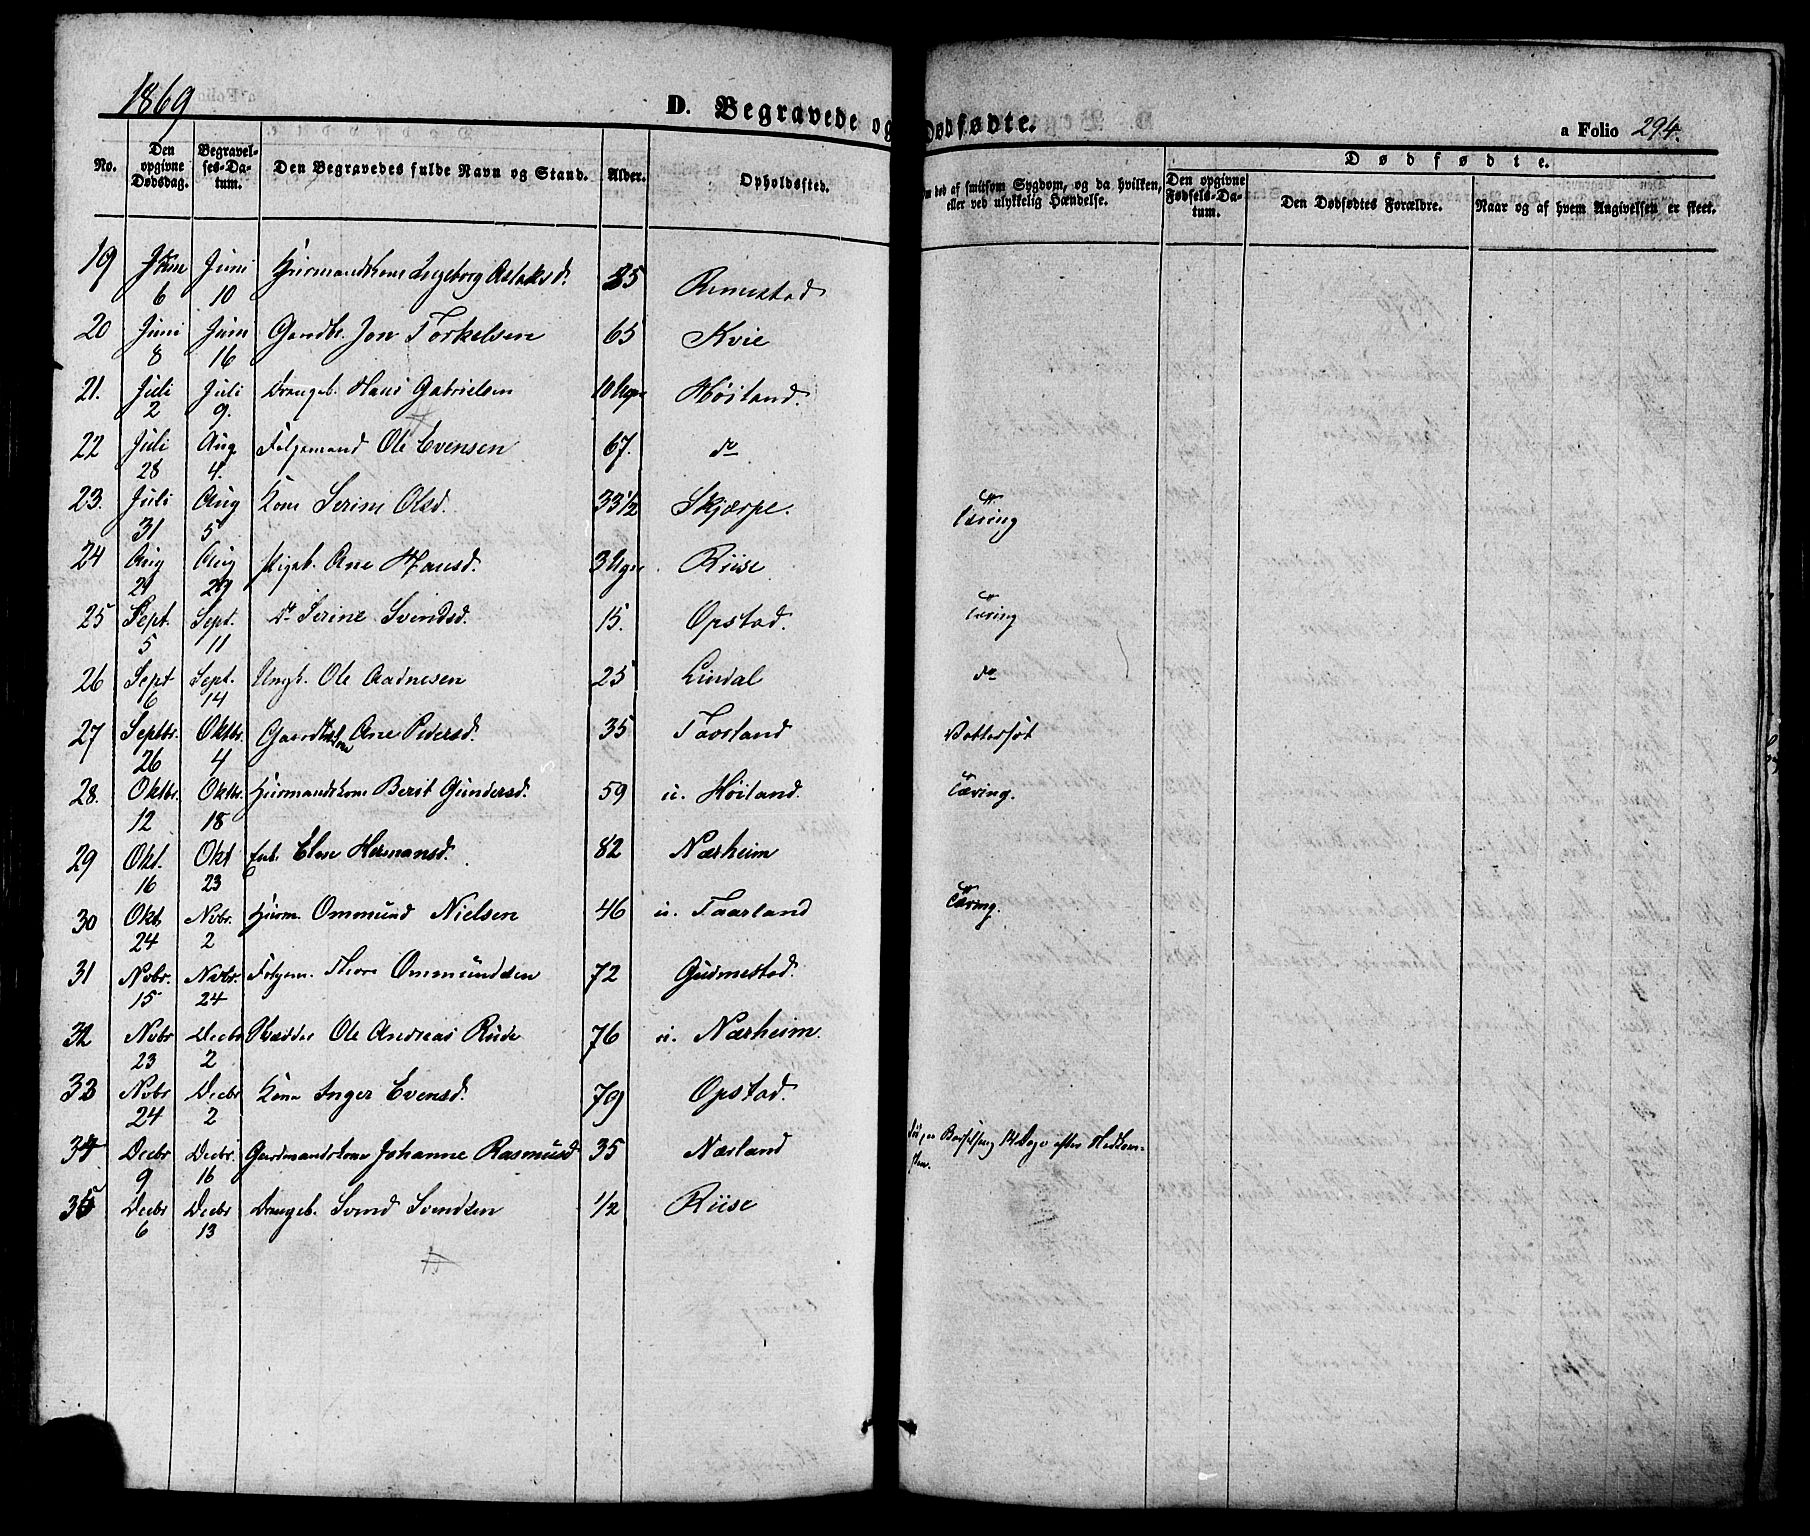 1869
D. Begravede og Dødfødte.
a Folio 294.
No. Den opgivne Dødsdag. Begravelses-Datum. Den Begravedes fulde Navn og Stand. Alder. Opholdssted. død af smitsom Sygdom, og da hvilken, eller ved ulykkelig Hændelse. Dødfødte.
Den opgivne Fødsels-Datum. Den Dødfødtes Forældre. Naar og af hvem Angivelsen er skeet.
19 Juni 6 Juni 10 Huusmandskone Ingeborg Aslaksd. 85 Rimestad
20 Juni 8 Juni 16 Gaardbr. Jon Torkelsen 65 Kvie
21. Juli 2 Juli 9. Drengeb. Hans Gabrielsen 10 Uger Høiland.
22 Juli 28 Aug 4. Følgemand Ole Evensen 67. do
23. Juli 31 Aug 5 Kone Serine Olsd. 33 1/2 Skjærpe. Tæring
24 Aug 21 Aug 29 Pigeb. Ane Hansd. 3 Uger Riise
25 Sept. 5 Sept. 11 Do Serine Svendsd. 15. Opstad. Tæring
26 Sept 6 Sept. 14 Ungk. Ole Aadnesen 25 Lindal do
27 Septbr. 26 Oktbr. 4 Gaardbr. kone Ane Pedersd. 35 Tavsland Vattersot
28. Oktbr. 12 Oktbr. 18 Huusmandskone Berit Gundersd. 59 u. Høiland. Tæring.
29 Okt. 16 Okt 23 Enk. Elen Hermansd. 82 Nærheim
30 Okt. 24 Novbr. 2 Huusm. Ommund Nielsen 46 u. Taarland Tæring.
31 Novbr. 15 Novbr. 24 Følgem. Thore Ommundsen 72 Gudmestad.
32 Novbr 23 Decbr 2 Skrædder Ole Andreas Rude 76 u. Nærheim.
33 Novbr 24 Decbr 2 Kone Inger Evensd. 79 Opstad.
34 Decbr 9 Decbr. 16 Gaardmandskone Johanne Rasmusd 35 Nærland Barselseng 14 Dage efter Nedkomsten.
35 Decbr 6 Decbr 13 Drengeb. Svend Svendsen 1/2 Riise